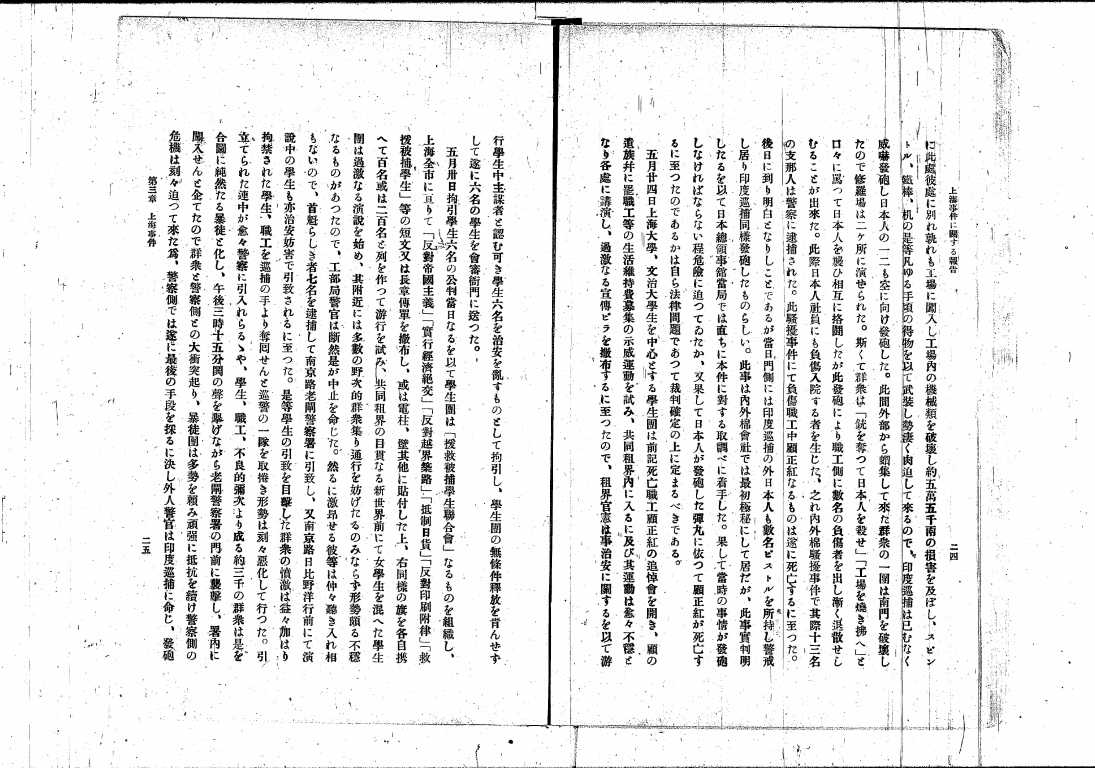 上海事件に關する報告
二四
に此處彼處に別れ孰れも工場に闖入し工場内の機械類を破壞し約五萬五千兩の損害を及ぼし、スピン
ドル、鐵棒、机の足等凡ゆる手頃の得物を以て武裝し勢凄く肉迫して來るので、印度巡捕は已むなく
威嚇發砲し日本人の一二も空に向け發砲した。此間外部から蝟集して來た群衆の一團は南門を破壞し
たので修羅場は二ケ所に演ぜられた。斯くて群衆は「銃を奪つて日本人を殺せ」「工場を燒き拂へ」と
口々に罵つて日本人を襲ひ相互に挌鬪したが此發砲により職工側に數名の負傷者を出し漸く退散せし
むることが出來た。此際日本人社員にも負傷入院する者を生じた、之れ内外棉騷擾事件で其際十三名
の支那人は警察に逮捕された。此騷擾事件にて負傷職工中顧正紅なるものは遂に死亡するに至つた。
後日に到り明白となりしことであるが當日門側には印度巡捕の外日本人も數名ピストルを所持し警戒
し居り印度巡捕同樣發砲したものらしい。此事は内外棉會社では最初極秘にして居だが、此事實判明
したるを以て日本總領事館當局では直ちに本件に對する取調べに着手した。果して當時の事情が發砲
しなければならない程危險に迫つてゐたか、又果して日本人が發砲した彈丸に依つて顧正紅が死亡す
るに至つたのであるかは自ら法律問題であつて裁判確定の上に定まるべきである。
五月廿四日上海大學、文治大學生を中心とする學生團は前記死亡職工顧正紅の追悼會を開き、顧の
遺族幷に罷職工等の生活維持費募集の示威運動を試み、共同租界内に入るに及び其運動は愈々不穩と
なり各處に講演し、過激なる宣傳ビラを撒布するに至つたので、租界官憲は事治安に關するを以て游
行學生中主謀者と認む可き學生六名を治安を亂すものとして拘引し、學生團の無條件釋放を肯んせず
して遂に六名の學生を會審衙門に送つた。
五月卅日拘引學生六名の公判當日なるを以て學生團は「援救被捕學生聯合會」なるものを組織し、
上海全市に亘りて「反對帝國主義」「實行經濟絶交」「反對越界築路」「抵制日貨」「反對印刷附律」「救
援被捕學生」等の短文又は長章傳單を撒布し、或は電柱、壁其他に貼付した上、右同樣の旗を各自携
へて百名或は二百名と列を作つて游行を試み、共同租界の目貫なる新世界前にて女學生を混へた學生
團は過激なる演説を始め、其附近には多數の野次的群衆集り通行を妨げたるのみならず形勢頗る不穩
なるものがあつたので、工部局警官は斷然是が中止を命じた。然るに激昂せる彼等は仲々聽き入れ相
もないので、首魁らしき者七名を逮捕して南京路老閘警察署に引致し、又南京路日比野洋行前にて演
説中の學生も亦治安妨害で引致されるに至つた。是等學生の引致を目擊した群衆の憤激は益々加はり
拘禁された學生、職工を巡捕の手より奪囘せんと巡警の一隊を取捲き形勢は刻々惡化して行つた。引
立てられた連中が愈々警察に引入れらるゝや、學生、職工、不良的彌次より成る約三千の群衆は是を
合圖に純然たる暴徒と化し、午後三時十五分鬨の聲を擧げながら老閘警察署の門前に襲擊し、署内に
闖入せんと企てたので群衆と警察側との大衝突起り、暴徒團は多勢を賴み頑强に抵抗を續け警察側の
危機は刻々迫つて來た爲、警察側では遂に最後の手段を採るに決し外人警官は印度巡捕に命じ、發砲
第三章　上海事件
二五